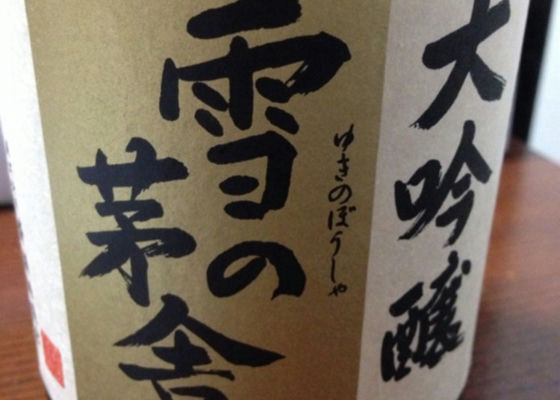 大吟醸
雪の
ゆきのぼうしゃ
茅舎